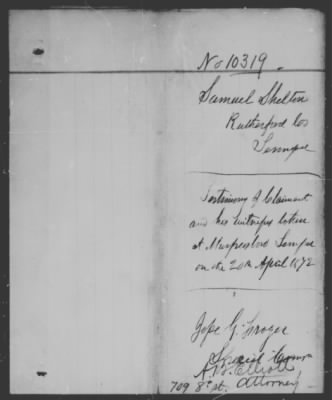 No 10319
Samuel Shelton
Rutherford Co
Tennessee
Testimony of Claimant
and his witnesses taken
at Murfreesboro Tennee
on the 20th April 1872
G.
Special Comr
A. B. Elliott
709 8th st. Attorney